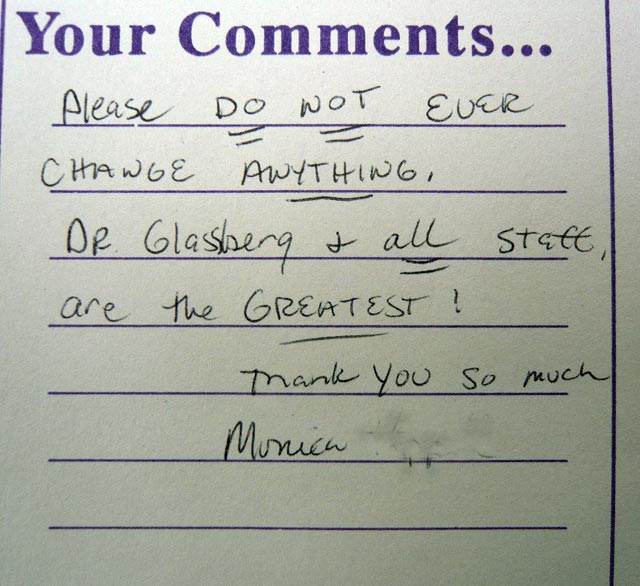 Your Comments...
Please DO NOT EVER
CHANGE ANYTHING.
DR. Glassberg & all staff,
are the GREATEST!
Thank YOU so much
Monica